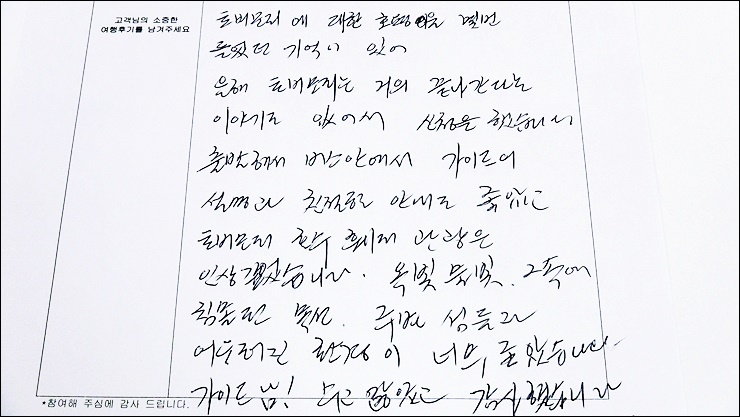 고객님의 소중한
여행후기를 남겨주세요
토버모리에 대한 호평을 몇번
들었던 기억이 있어
올해 토버모리는 거의 끝나간다는
이야기도 있어서 신청을 했습니다
출발해서 버스안에서 가이드의
설명과 친절한 안내도 좋았고
토버모리 관광은
인상 깊었습니다. 옥빛 물빛. 그속에
침몰된 목선. 주변 섬들과
어우러진 환경이 너무 좋았습니다.
가이드님! 수고 많았고 감사했습니다
*참여해 주심에 감사 드립니다.